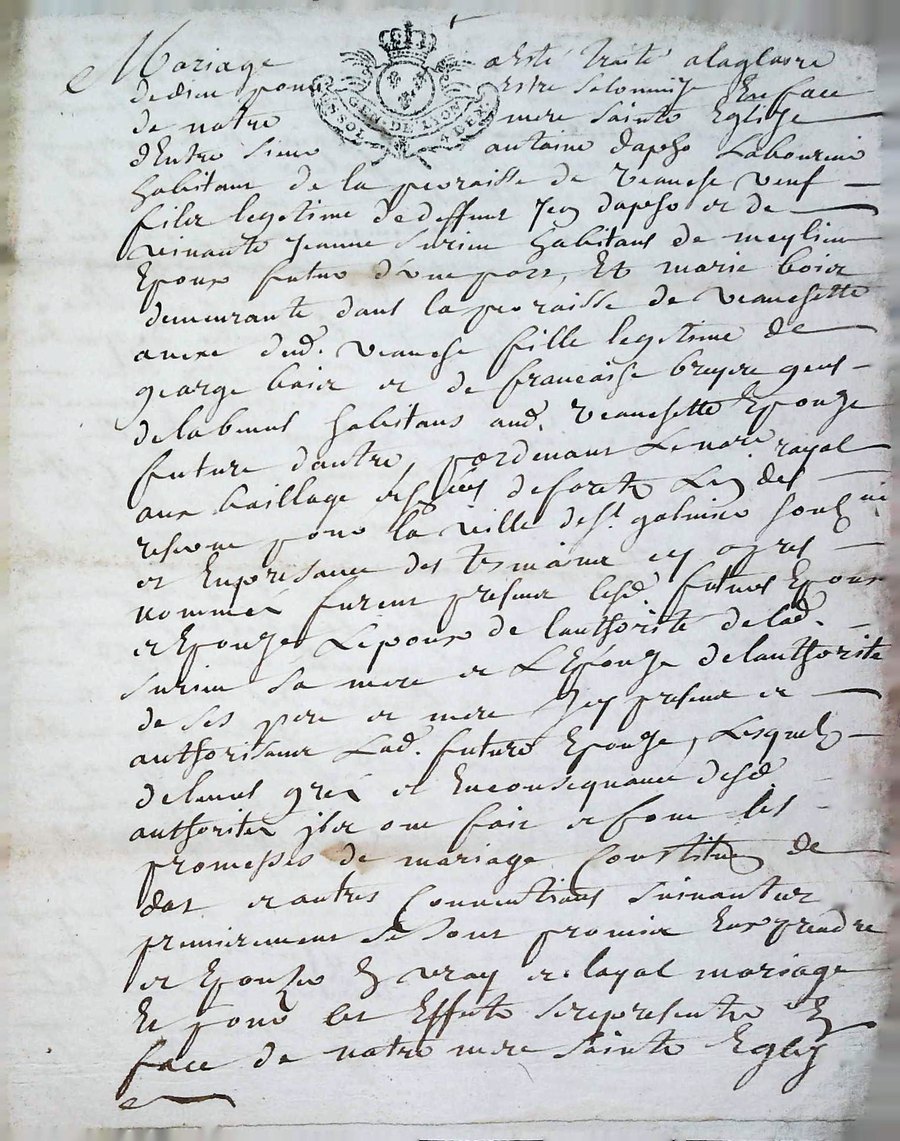 Mariage a esté traité a la gloire
de dieu pour estre solomnizé En face
GEN. DE LYON
de notre mere sainte Eglize
d'Entre sieur antoine dapho Laboureur
habitant de la peroaisse de veauche veuf
fils legitime de deffunt Jean dapho et de
vivante jeanne surieu habitans de meylieu
Epoux futur d'une part, Et marie boier
demeurante dans la peroaisse de veauchette
anexe dud. veauche fille legitime de
george boier et de francaise bruyere gens
de labeurs habitans aud. veauchette Epouze
future d'autre, pardevant Le no.re royal
aux baillage de forets
reserve pour la ville de st galmier souss.né
et En presance des tesmoins cy apres
nommés furent presens lesd. futurs Epoux
et Epouze Lepoux de l'authorité de lad.
surieu sa mere et L'Epouze de l'authorité
de ses pere et mere Jcy presens et
authorisans Lad. future Epouze, Lesquels
de leurs grés et En consequance desd.
authorités ils ont fait et font les
promesses de mariage Constitu.on de
dot et autres Conventions suivantes
premierement se sont promis En prendre
et Epouser En vray et loyal mariage
Et pour cet Effete se representer En
face de notre mere sainte Eglize